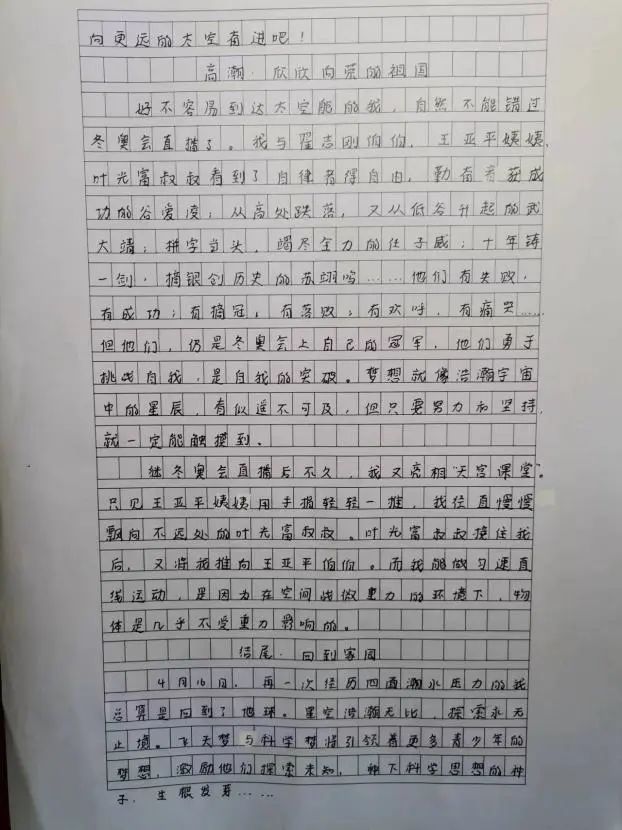 向更远的太空奋进吧！
高潮：欣欣向荣的祖国
好不容易到达太空舱的我，自然不能错过
冬奥会直播了。我与翟志刚伯伯，王亚平姨姨、
叶光富叔叔看到了自律者得自由，勤奋者获成
功的谷爱凌；从高处跌落，又从低谷升起的武
大靖；拼字当头，竭尽全力的任子威；十年铸
一剑，摘银创历史的苏翊鸣……他们有失败，
有成功；有摘冠，有落败；有欢呼，有痛哭……
但他们，仍是冬奥会上自己的冠军，他们勇于
挑战自我，是自我的突破。梦想就像浩瀚宇宙
中的星辰，看似遥不可及，但只要努力和坚持，
就一定能触摸到。
继冬奥会直播后不久，我又亮相"天宫课堂"。
只见王亚平姨姨用手指轻轻一推，我径直慢慢
飘向不远处的叶光富叔叔。叶光富叔叔接住我
后，又将我推向王亚平伯伯。而我能做匀速直
线运动，是因为在空间站微重力的环境下，物
体是几乎不受重力影响的。
结尾：回到家园
4月16日，再一次经历四面潮水压力的我
总算是回到了地球。星空浩瀚无比，探索永无
止境。飞天梦与科学梦将引领着更多青少年的
梦想，激励他们探索未知，种下科学思想的种
子，生根发芽……